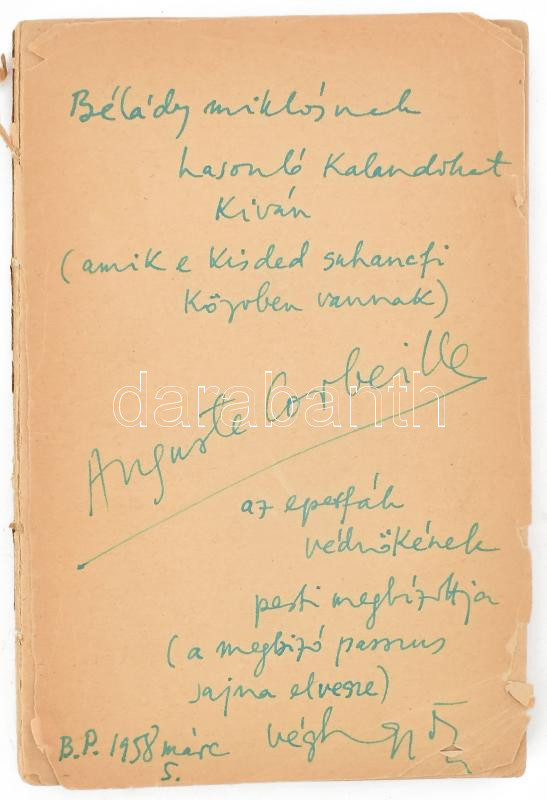 Bélády miklósnak
hasonló Kalandokat
Kíván
(amik e Kisded suhancfi
Közpben vannak)
darabanth
Auguste Corbeille
az eperfák
védnőkének
pesti megbízottja
(a megbízó passzus
sajna elvesze)
B.P. 1958 márc
5.
végh